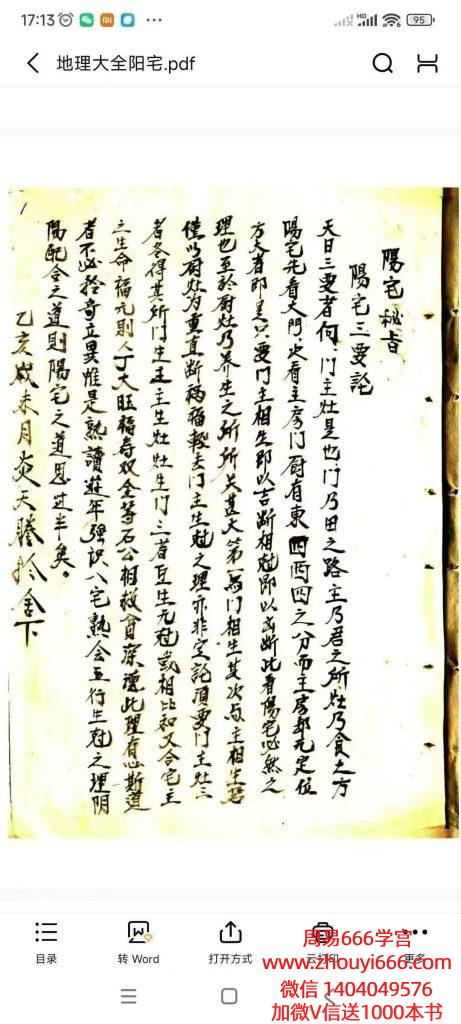 17:13
95
地理大全阳宅.pdf
陽宅秘旨
陽宅三要論
夫曰三要者何門主灶是也門乃由之路主乃君之所灶乃食之方
陽宅先看大門次看主房門厨有東西四之分而主房却无定位
方大者即是只要門主相生即以吉断相尅即以凶断此看陽宅必然之
理也至於厨灶乃养生之所所关甚大第一馬門相生其次与主相生若
僅以厨灶为重直断祸福輕去門主生尅之理亦非定論須要門主灶三
者各得其所門生主主生灶灶生門三者互生无尅或相比和又合宅主
之生命福元則人丁大旺福寿双全等石公相救貧深德此理有心斯道
者不必拎奇立異惟是熟讀遊年强识八宅熟会五行生尅之理阴
陽配合之道則陽宅之道思过半矣。
乙亥歲未月炎天謄於舍下
目录
转 Word
打开方式
云打印
更多
周易666学宫
www.zhouyi666.com
微信 1404049576
加微V信送1000本书